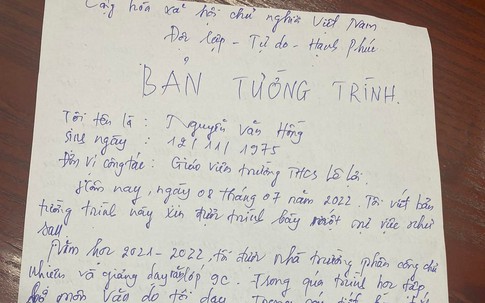 Cộng hòa xã hội chủ nghĩa Việt Nam
Độc lập - Tự do - Hạnh Phúc
BẢN TƯỜNG TRÌNH.
Tôi tên là : Nguyễn Văn Hồng
Sinh ngày : 12/11/1975
Đơn vị công tác : Giáo viên trường THCS Lê Lợi.
Hôm nay, ngày 08 tháng 07 năm 2022. Tôi viết bản
tường trình này xin được trình bày một sự việc như
sau:
Năm học 2021-2022, tôi được nhà trường phân công chủ
nhiệm và giảng dạy lớp 9C. Trong quá trình học tập,
bộ môn Văn do tôi dạy